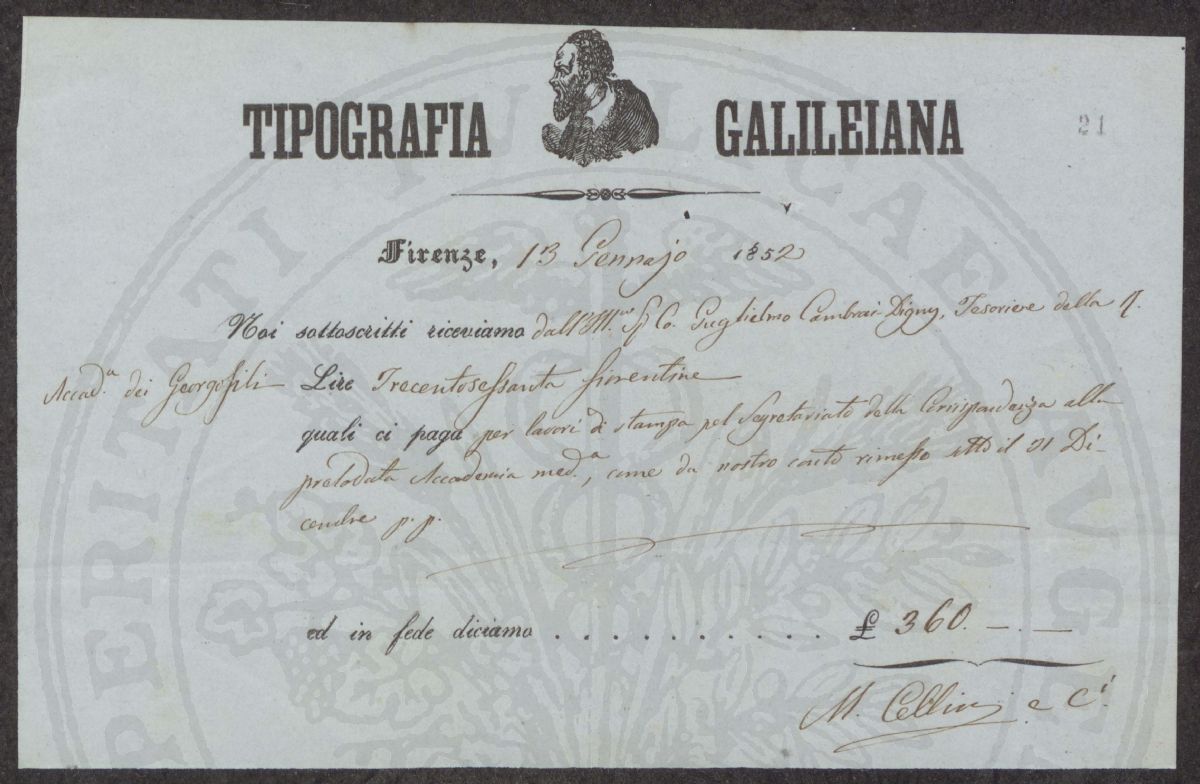 TIPOGRAFIA GALILEIANA
21
Firenze, 13 Gennajo 1852
Noi sottoscritti riceviamo dall'Ill.mo Sig. Co. Guglielmo Cambrai-Digny, Tesoriere della R.
Accad.a dei Georgofili Lire Trecentosessanta fiorentine
quali ci paga per lavori di stampa pel Segretariato della Corrispondenza alla
prelodata Accademia med.a, come da nostro conto rimesso sotto il 31 Di-
cembre p.p.
ed in fede diciamo . . . . . . . . . . . . . £ 360. – . –
M. Cellini e C.i
PERITATI PUBLICAE AUGE